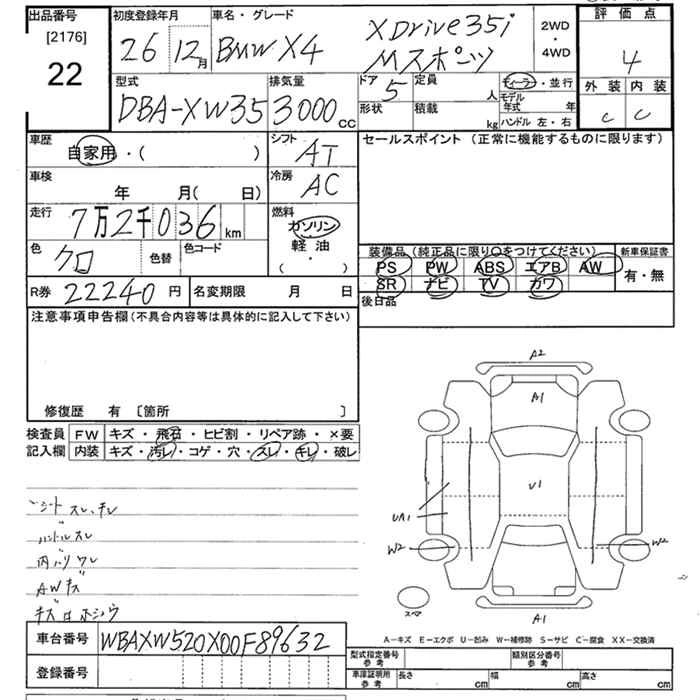 出品番号
[2176]
22
初度登録年月
26 12月
車名・グレード
BMW X4 XDrive35i
Mスポーツ
2WD
・
4WD
評価点
4
外装 内装
C C
型式
DBA-XW35
排気量
3000cc
ドア 5
形状
定員 人
積載 kg
ディーラー・並行
モデル年式 年
ハンドル 左・右
車歴
自家用・( )
シフト
AT
車検
年 月( 日)
冷房
AC
走行
7万2千036km
燃料
ガソリン
軽油
( ・ )
色
クロ
色替
色コード
セールスポイント (正常に機能するものに限ります)
装備品(純正品に限り○をつけてください)
PS PW ABS エアB AW
SR ナビ TV カワ
新車保証書
有・無
R券 22240円
名変期限 月 日
後日品
注意事項申告欄(不具合内容等は具体的に記入して下さい)
修復歴 有 〔箇所 〕
検査員記入欄
FW キズ・飛石・ヒビ割・リペア跡・×要
内装 キズ・汚レ・コゲ・穴・スレ・キレ・破レ
シート スレ、キレ
ハンドルスレ
内ハリ ワレ
AWキズ
A2
A1
U1
UA1
W2
W2
スペア
A1
A−キズ E−エクボ U−凹み W−補修跡 S−サビ C−腐食 XX−交換済
車台番号 WBAXW520X00F89632
登録番号
型式指定番号
参考
類別区分番号
参考
車庫証明用
参考
長さ cm 幅 cm 高さ cm